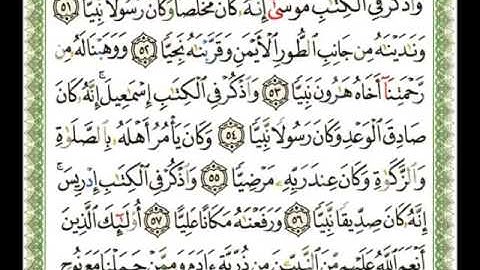 وَٱذْكُرْ فِى ٱلْكِتَٰبِ مُوسَىٰٓ إِنَّهُۥ كَانَ مُخْلَصًا وَكَانَ رَسُولًا نَّبِيًّا ٥١
وَنَٰدَيْنَٰهُ مِن جَانِبِ ٱلطُّورِ ٱلْأَيْمَنِ وَقَرَّبْنَٰهُ نَجِيًّا ٥٢ وَوَهَبْنَا لَهُۥ مِن
رَّحْمَتِنَآ أَخَاهُ هَٰرُونَ نَبِيًّا ٥٣ وَٱذْكُرْ فِى ٱلْكِتَٰبِ إِسْمَٰعِيلَ إِنَّهُۥ كَانَ
صَادِقَ ٱلْوَعْدِ وَكَانَ رَسُولًا نَّبِيًّا ٥٤ وَكَانَ يَأْمُرُ أَهْلَهُۥ بِٱلصَّلَوٰةِ
وَٱلزَّكَوٰةِ وَكَانَ عِندَ رَبِّهِۦ مَرْضِيًّا ٥٥ وَٱذْكُرْ فِى ٱلْكِتَٰبِ إِدْرِيسَ
إِنَّهُۥ كَانَ صِدِّيقًا نَّبِيًّا ٥٦ وَرَفَعْنَٰهُ مَكَانًا عَلِيًّا ٥٧ أُو۟لَٰٓئِكَ ٱلَّذِينَ
أَنْعَمَ ٱللَّهُ عَلَيْهِم مِّنَ ٱلنَّبِيِّـۧنَ مِن ذُرِّيَّةِ ءَادَمَ وَمِمَّنْ حَمَلْنَا مَعَ نُوحٍ